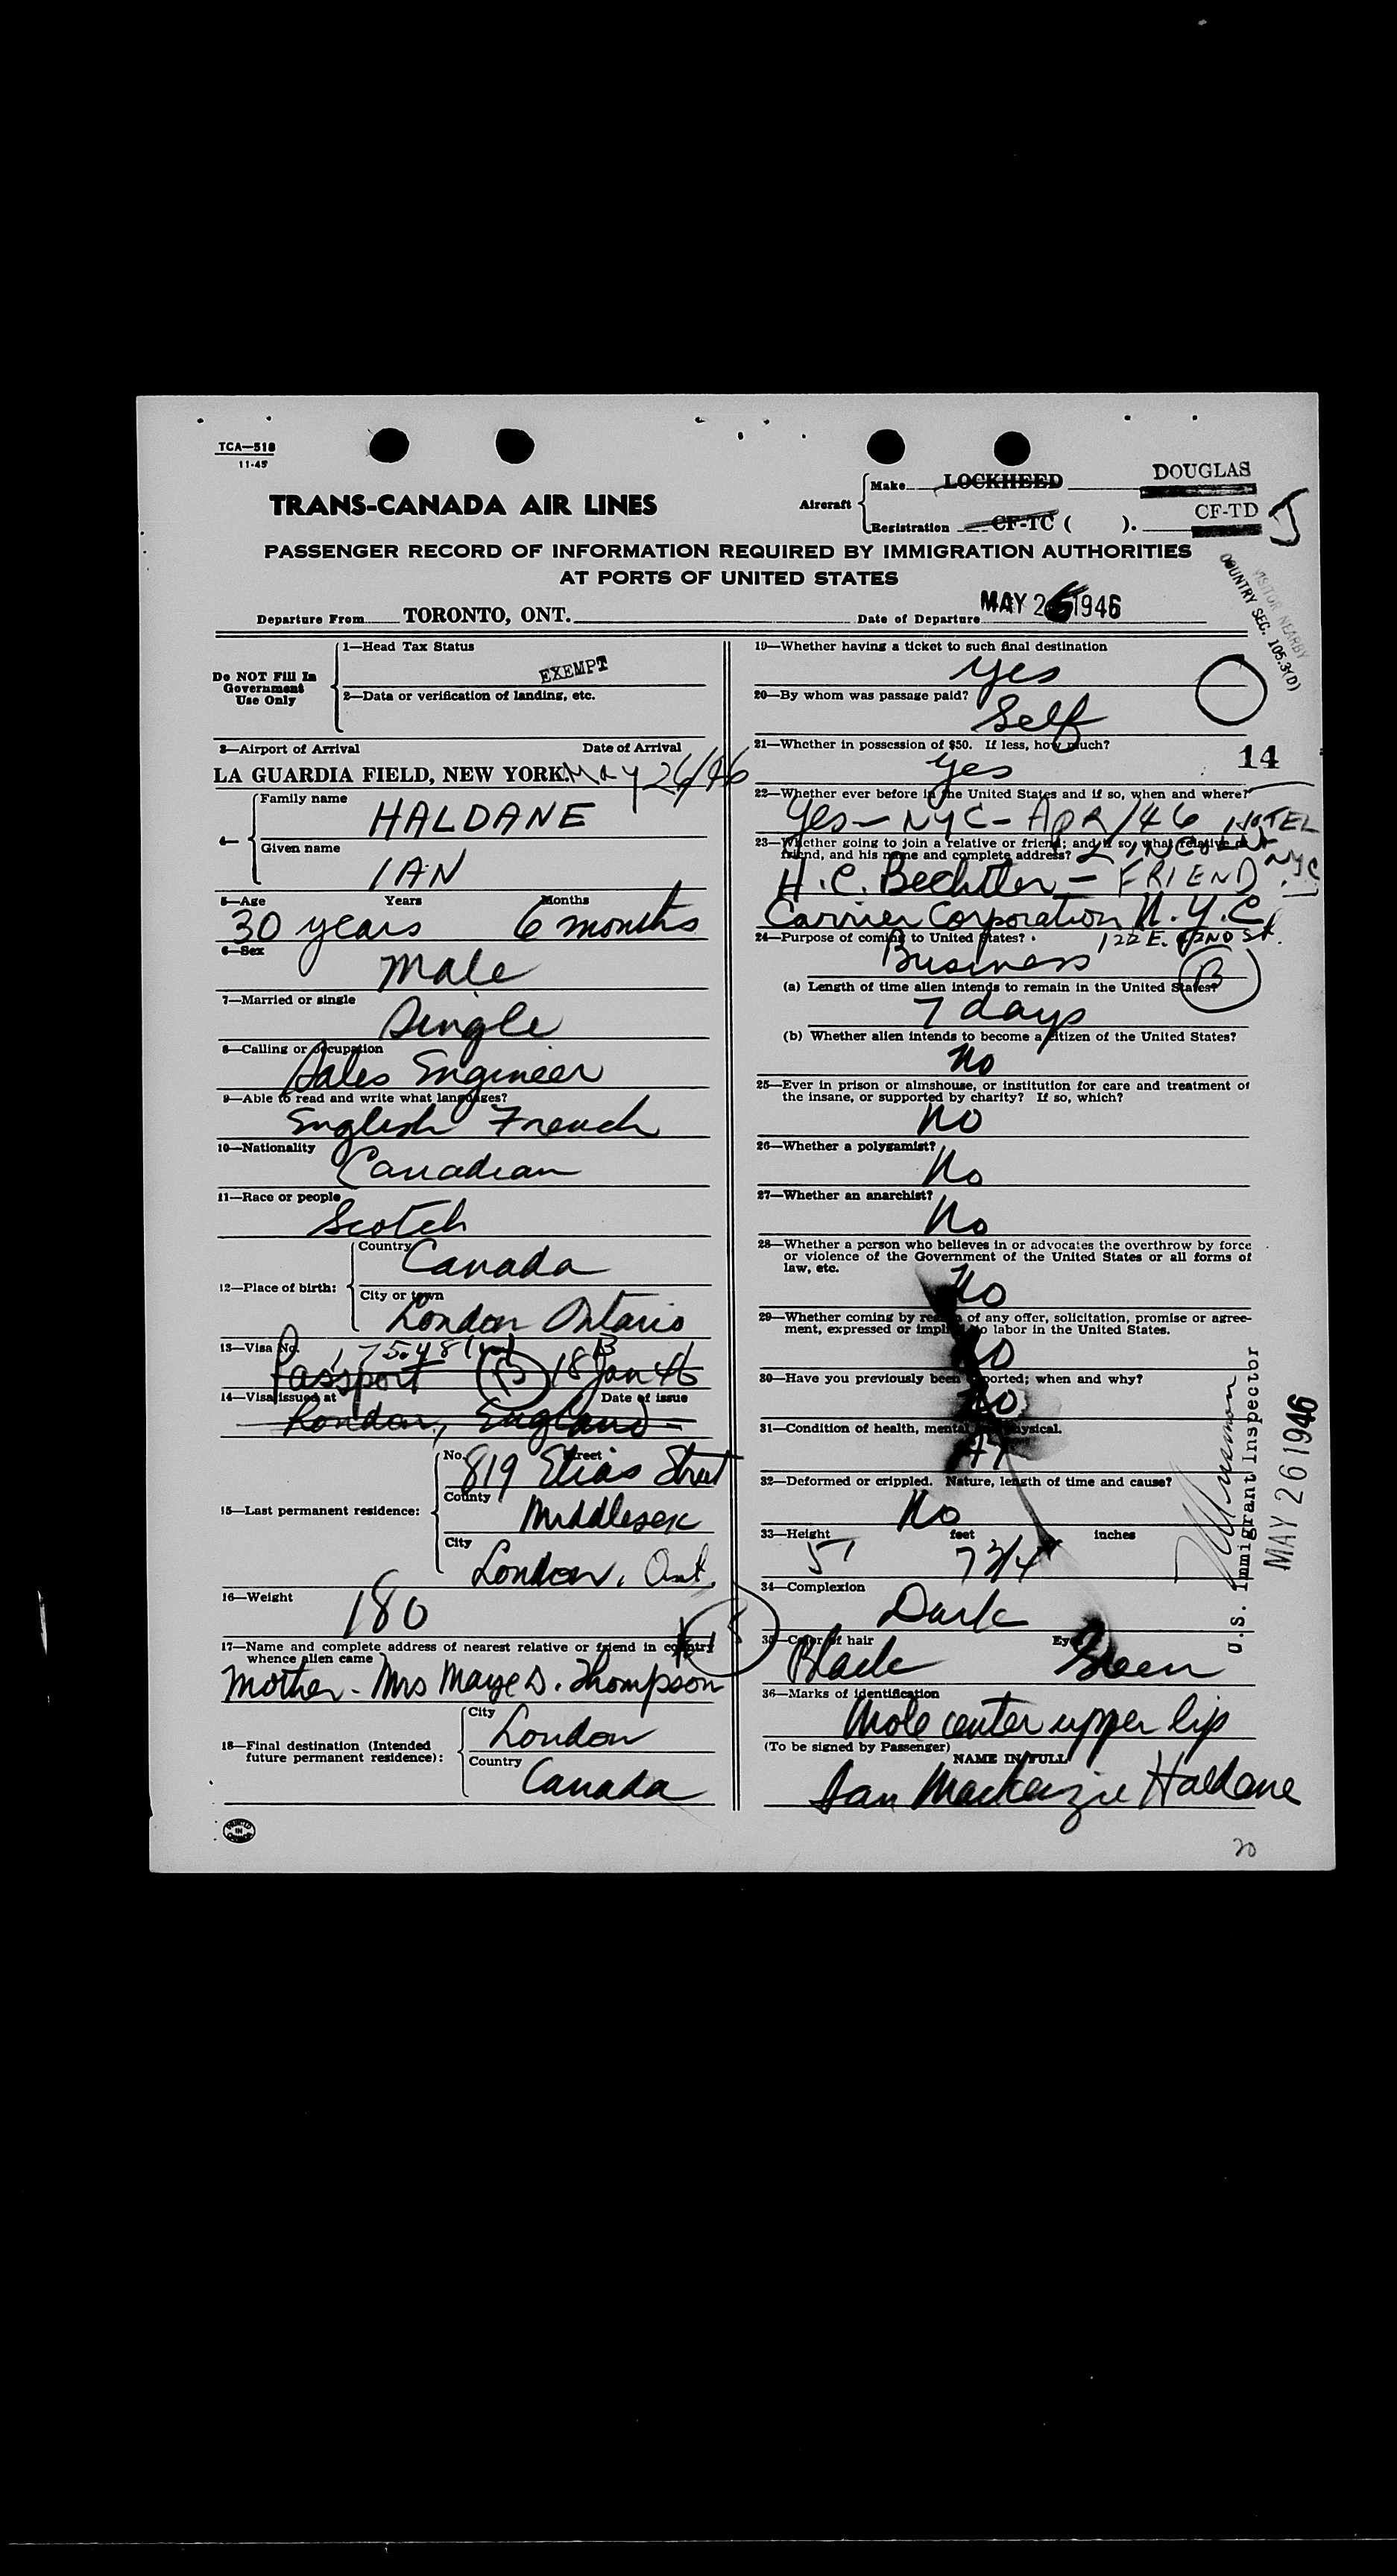 TCA—518
11-45
TRANS-CANADA AIR LINES
Aircraft
Make LOCKHEED DOUGLAS
Registration CF-TC ( ). CF-TD J
PASSENGER RECORD OF INFORMATION REQUIRED BY IMMIGRATION AUTHORITIES
AT PORTS OF UNITED STATES
Departure From TORONTO, ONT.
Date of Departure MAY 26 1946
VISITOR NEARBY
COUNTRY SEC. 105.3(D)
Do NOT Fill In
Government
Use Only
1—Head Tax Status
EXEMPT
2—Data or verification of landing, etc.
3—Airport of Arrival Date of Arrival
LA GUARDIA FIELD, NEW YORK. MAY 26/46
4—
Family name
HALDANE
Given name
IAN
5—Age Years Months
30 years 6 months
6—Sex
Male
7—Married or single
Single
8—Calling or occupation
Sales Engineer
9—Able to read and write what languages?
English French
10—Nationality
Canadian
11—Race or people
Scotch
12—Place of birth:
Country
Canada
City or town
London Ontario
13—Visa No.
Passport B 18 Jan 46
14—Visa issued at Date of issue
London, England
15—Last permanent residence:
No. Street
819 Elias Street
County
Middlesex
City
London, Ont.
16—Weight
180
17—Name and complete address of nearest relative or friend in country
whence alien came
Mother - Mrs Marye D. Thompson
18—Final destination (Intended
future permanent residence):
City
London
Country
Canada
PRINTED
IN
CANADA
19—Whether having a ticket to such final destination
yes
20—By whom was passage paid?
Self
21—Whether in possession of $50. If less, how much?
yes
14
22—Whether ever before in the United States and if so, when and where?
Yes - NYC - APR/46 HOTEL
23—Whether going to join a relative or friend; and if so, what relative or
friend, and his name and complete address?
LINCOLN NYC
H. C. Bechtler - FRIEND
Carrier Corporation N.Y.C.
122 E. 42ND ST.
24—Purpose of coming to United States?
Business
B
(a) Length of time alien intends to remain in the United States?
7 days
(b) Whether alien intends to become a citizen of the United States?
No
25—Ever in prison or almshouse, or institution for care and treatment of
the insane, or supported by charity? If so, which?
No
26—Whether a polygamist?
No
27—Whether an anarchist?
No
28—Whether a person who believes in or advocates the overthrow by force
or violence of the Government of the United States or all forms of
law, etc.
No
29—Whether coming by reason of any offer, solicitation, promise or agree-
ment, expressed or implied to labor in the United States.
No
30—Have you previously been deported; when and why?
No
31—Condition of health, mental physical.
A1
32—Deformed or crippled. Nature, length of time and cause?
No
33—Height feet inches
5' 7 3/4"
34—Complexion
Dark
35—Color of hair Eyes
Black Green
36—Marks of identification
Mole center upper lip
(To be signed by Passenger)
NAME IN FULL
Ian Mackenzie Haldane
U.S. Immigrant Inspector
MAY 26 1946
20